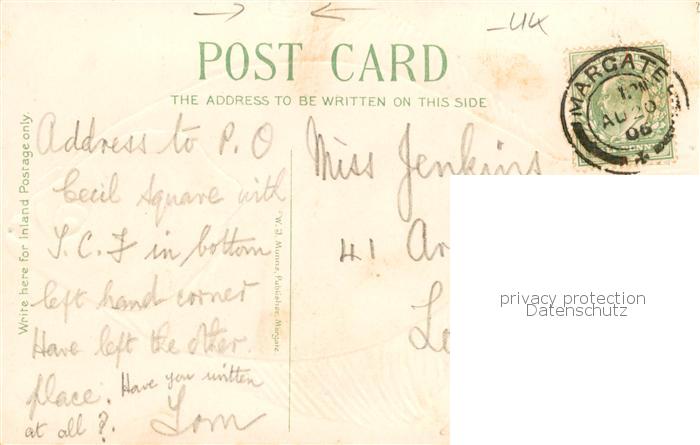 -44
POST CARD
THE ADDRESS TO BE WRITTEN ON THIS SIDE
MARGATE
AU 20
06
PENNY
Write here for Inland Postage only.
Address to P.O
Cecil Square with
T.C.F in bottom
left hand corner
Have left the other
place. Have you written
at all? Tom
W. J. Munns, Publisher, Margate
Miss Jenkins
41
privacy protection
Datenschutz